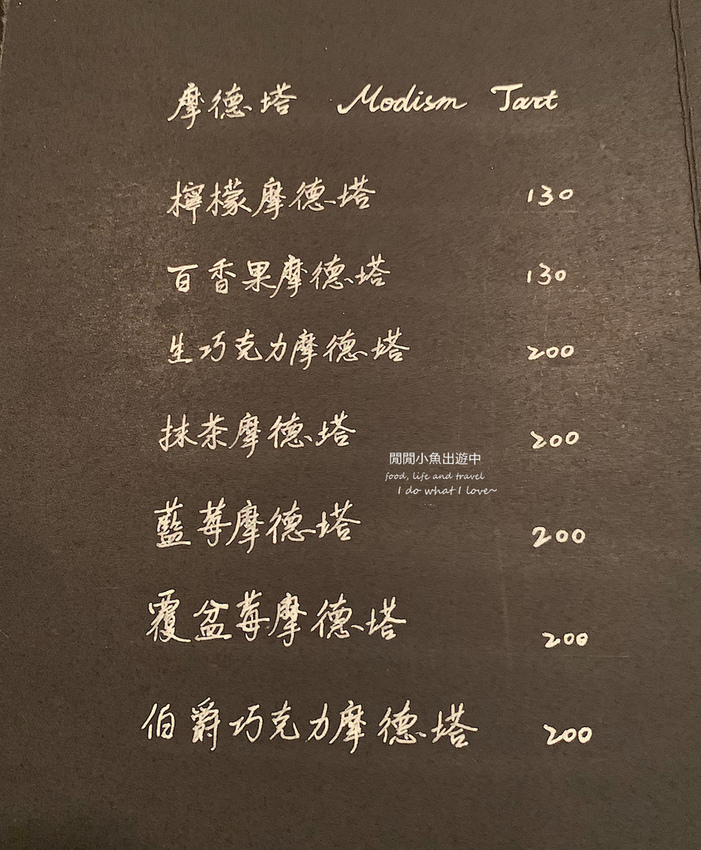 摩德塔 Modism Tart
檸檬摩德塔 130
百香果摩德塔 130
生巧克力摩德塔 200
抹茶摩德塔 200
閒閒小魚出遊中
food, life and travel
I do what I love~
藍莓摩德塔 200
覆盆莓摩德塔 200
伯爵巧克力摩德塔 200